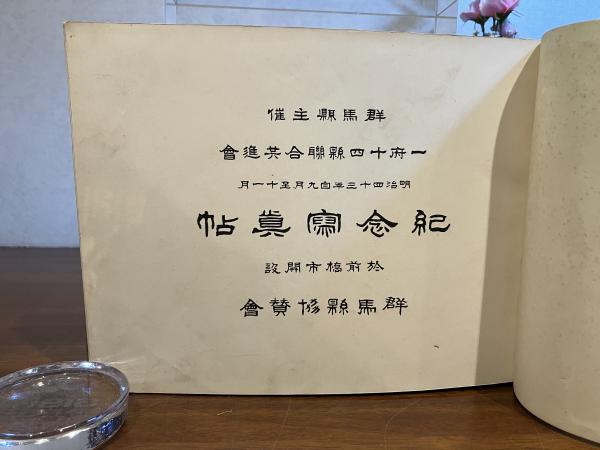 群馬縣主催
一府十四縣聯合共進會
明治四十三年自九月至十一月
紀念寫真帖
於前橋市開設
群馬縣協賛會